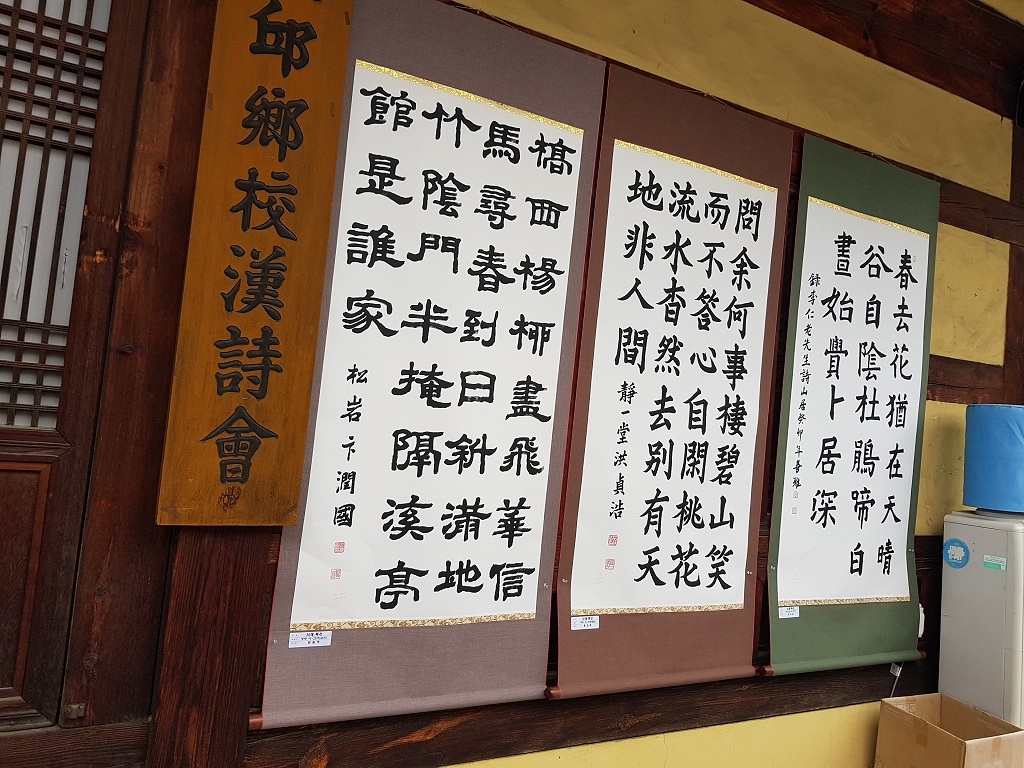 邱鄕校漢詩會
橋西楊柳盡飛華信
馬尋春到日斜滿地
竹陰門半掩隔溪亭
館是誰家
松岩卞潤國
問余何事棲碧山笑
而不答心自閑桃花
流水杳然去別有天
地非人間
靜一堂洪貞浩
春去花猶在天晴
谷自陰杜鵑啼白
晝始覺卜居深
錄李仁老先生詩山居癸卯年